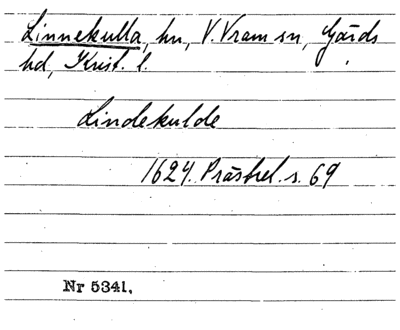 Linnekulla, hn, V. Vram sn, Gärds
hd, Krist. l.
Lindekulde
1624. Prästrel. s. 69
Nr 5341.